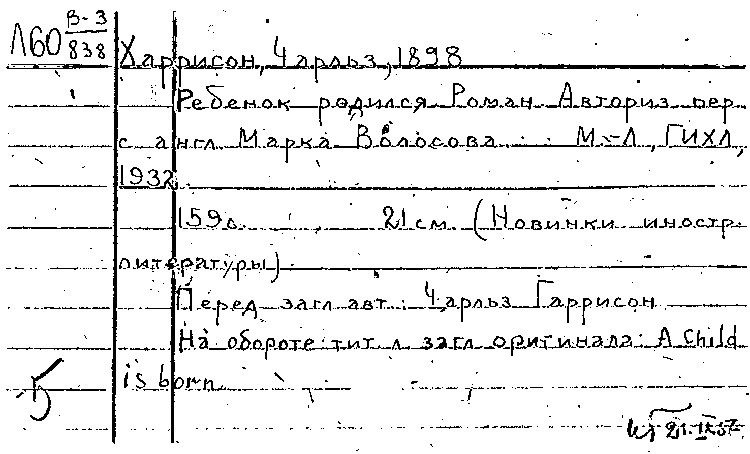 Л60 В-3/838
Харрисон, Чарльз, 1898
Ребенок родился, Роман. Авториз. пер.
с англ. Марка Волосова. М.-Л., ГИХЛ,
1932.
159 с. 21 см. (Новинки иностр.
литературы)
Перед загл. авт.: Чарльз Гаррисон
На обороте тит. л. загл. оригинала: A Child
is born
5
21.IX.57